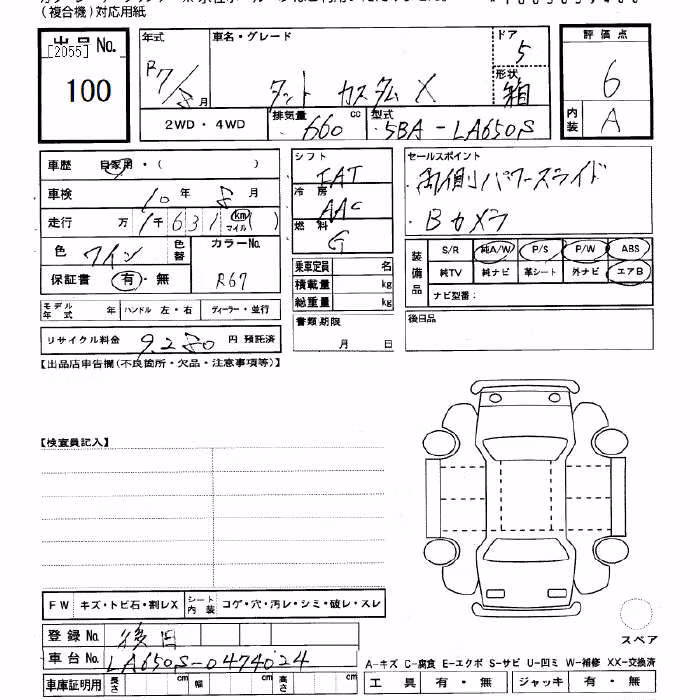 (複合機)対応用紙
出品No.
[2055]
100
年式
R7/8月
車名・グレード
タント カスタム X
ドア
5
形状
箱
2WD・4WD
排気量
660 cc
型式
5BA-LA650S
評価点
6
内装
A
車歴 自家用・( )
車検 10年8月
走行 万1千631(km マイル)( )
色 ワイン
色替
カラーNo.
R67
保証書 有・無
モデル年式 年 ハンドル 左・右 ディーラー・並行
リサイクル料金 9,280 円 預託済
シフト
IAT
冷房
AAC
燃料
G
乗車定員 名
積載量 kg
総重量 kg
書類期限
月 日
セールスポイント
・両側パワースライド
・Bカメラ
装備品
S/R 純A/W P/S P/W ABS
純TV 純ナビ 革シート 外ナビ エアB
ナビ型番:
後日品
【出品店申告欄(不良箇所・欠品・注意事項等)】
【検査員記入】
FW キズ・トビ石・割レX
シート内装 コゲ・穴・汚レ・シミ・破レ・スレ
登録No. 後日
車台No. LA650S-0474024
車庫証明用 長さ cm 幅 cm 高さ cm
スペア
A-キズ C-腐食 E-エクボ S-サビ U-凹ミ W-補修 XX-交換済
工具 有・無 ジャッキ 有・無